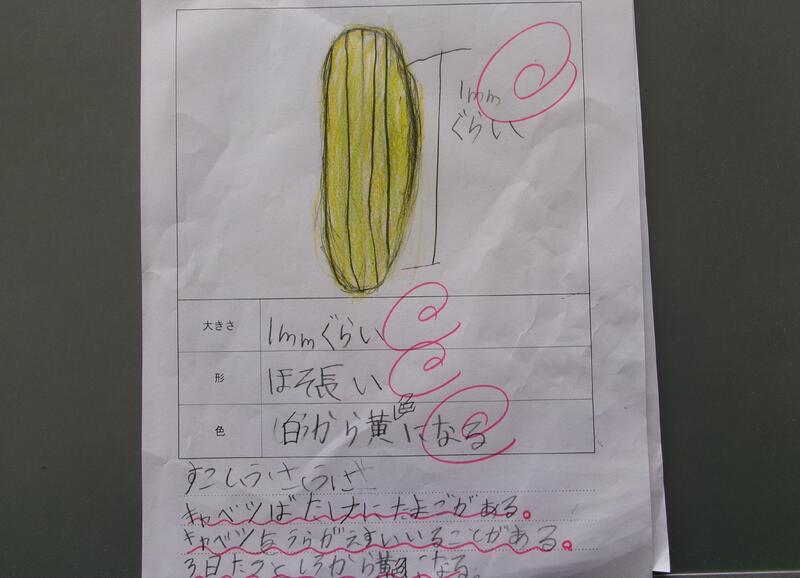 1mm
ぐらい
大きさ 1mmぐらい
形 ほそ長い
色 白から黄色になる
すこし
キャベツばたけにたまごがある。
キャベツをうらがえすいいることがある。
3日たつとしろから黄色になる。